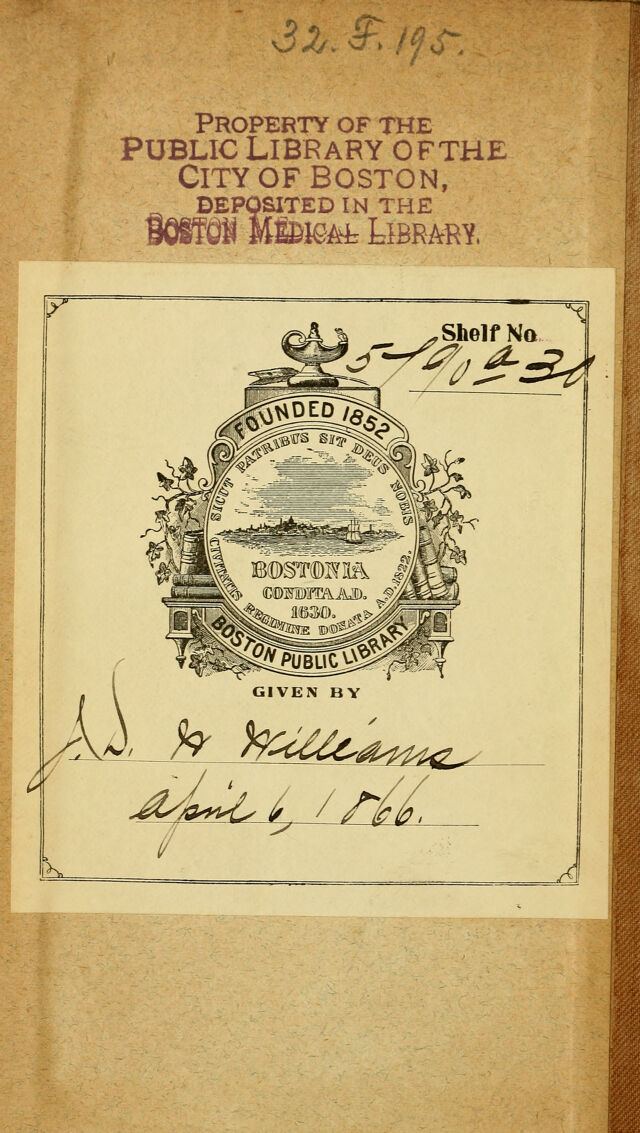 32.F.195.
PROPERTY OF THE
PUBLIC LIBRARY OF THE
CITY OF BOSTON,
DEPOSITED IN THE
BOSTON MEDICAL LIBRARY.
Shelf No
5190 a 30
FOUNDED 1852
SICUT PATRIBUS SIT DEUS NOBIS
BOSTONIA
CONDITA A.D.
1630.
CIVITATIS REGIMINE DONATA A.D. 1822.
BOSTON PUBLIC LIBRARY
GIVEN BY
J. D. W Williams
april 6, 1866.